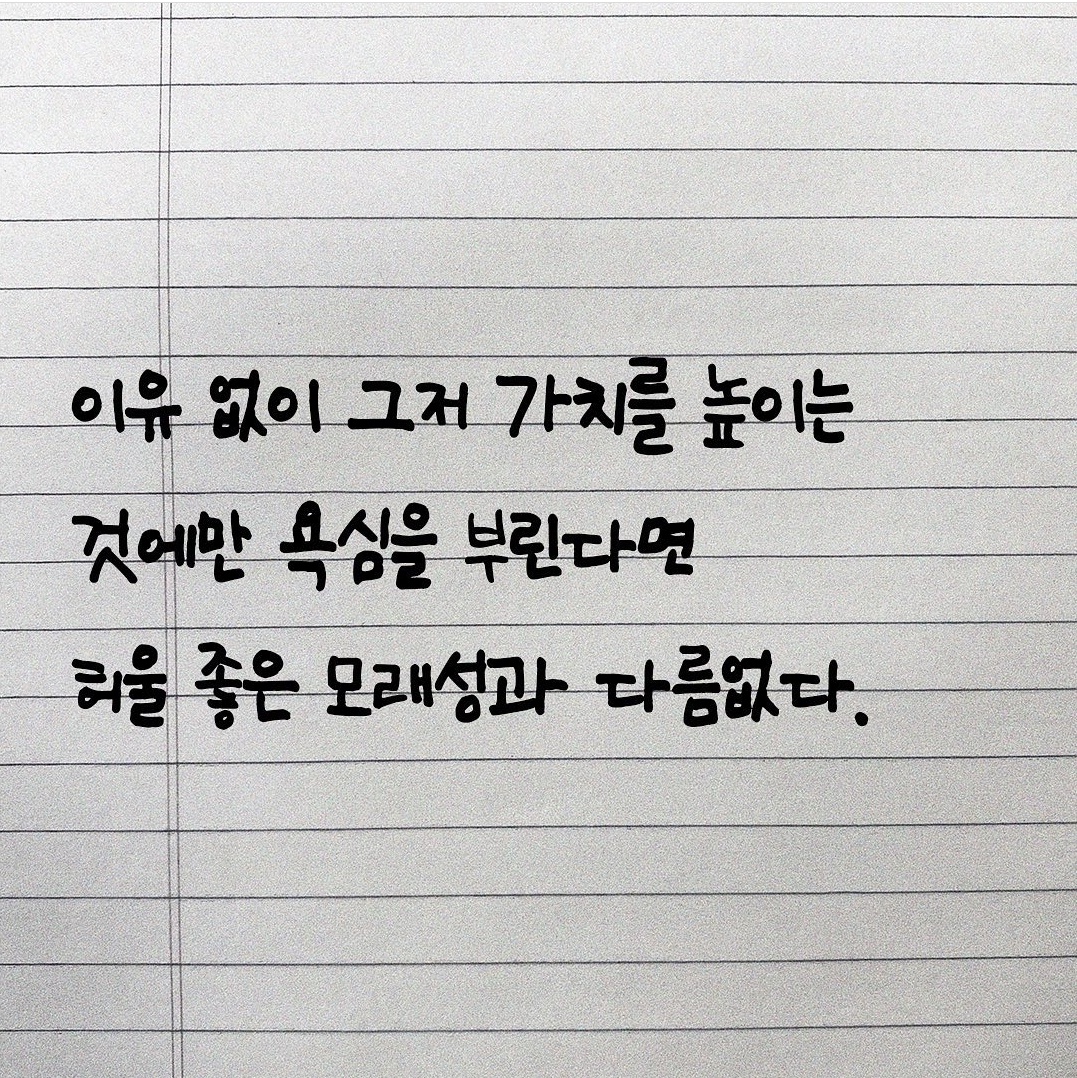 이유 없이 그저 가치를 높이는
것에만 욕심을 부린다면
허울 좋은 모래성과 다름없다.